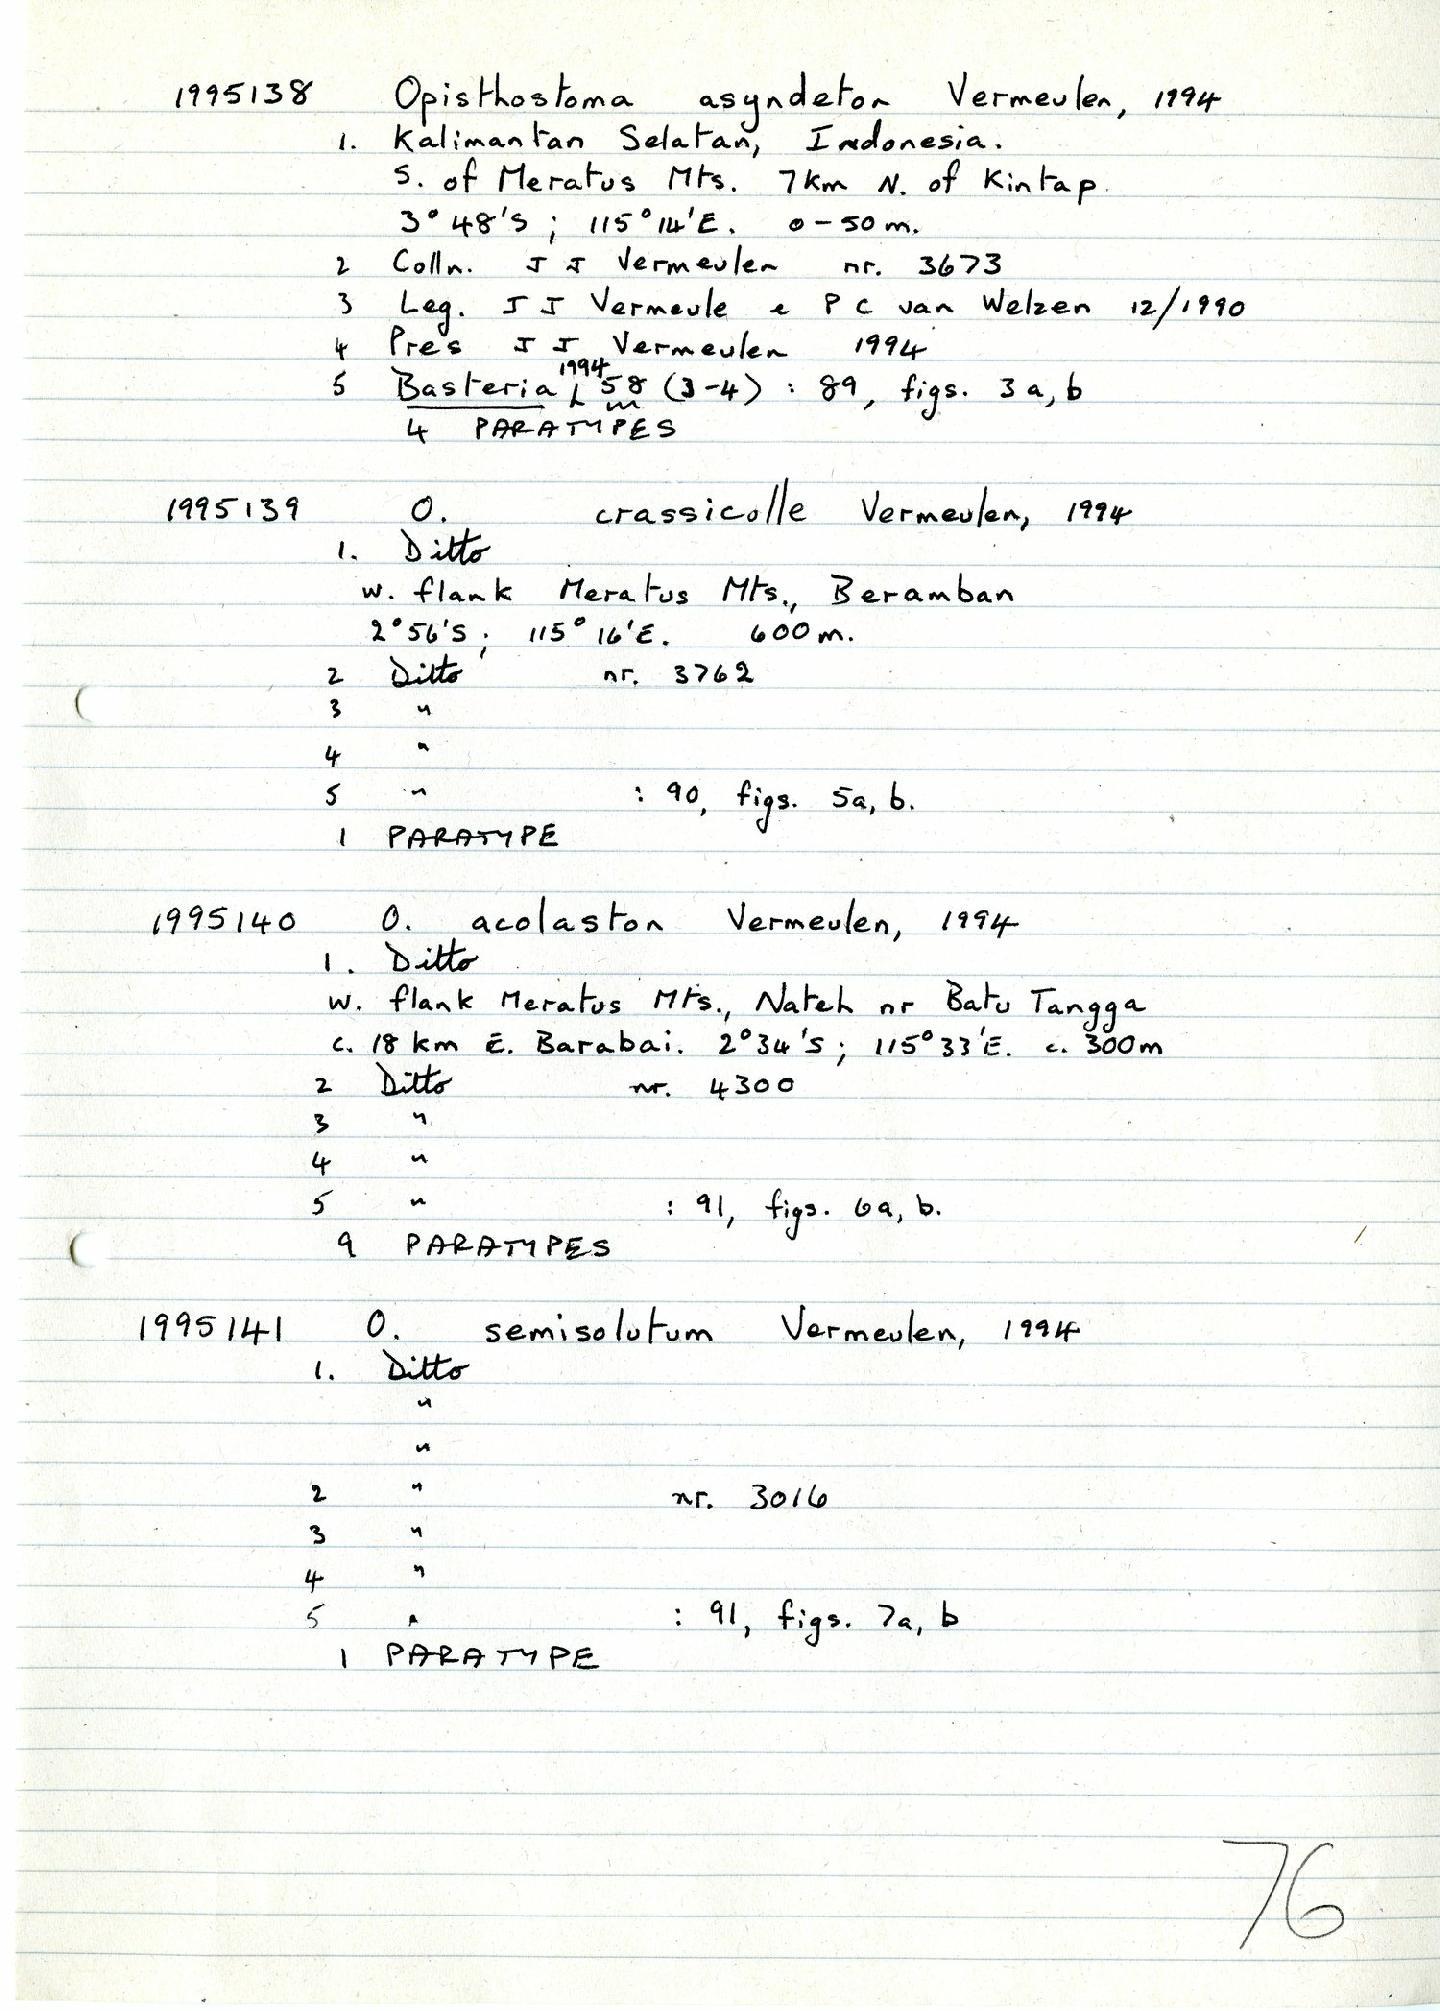 1995138 Opisthostoma asyndeton Vermeulen, 1994
1. Kalimantan Selatan, Indonesia.
S. of Meratus Mts. 7km N. of Kintap.
3°48'S ; 115°14'E. 0-50m.
2 Colln. J J Vermeulen nr. 3673
3 Leg. J J Vermeule & P C van Welzen 12/1990
4 Pres J J Vermeulen 1994
1994
5 Basteria, 58 (3-4) : 89, figs. 3a, b
4 PARATYPES
1995139 O. crassicolle Vermeulen, 1994
1. Ditto
W. flank Meratus Mts., Beramban
2°56'S; 115°16'E. 600m.
2 Ditto nr. 3762
3 "
4 "
5 " : 90, figs. 5a, b.
1 PARATYPE
1995140 O. acolaston Vermeulen, 1994
1. Ditto
W. flank Meratus Mts., Nateh nr Batu Tangga
c. 18 km E. Barabai. 2°34'S; 115°33'E. c. 300m
2 Ditto nr. 4300
3 "
4 "
5 " : 91, figs. 6a, b.
9 PARATYPES
1995141 O. semisolutum Vermeulen, 1994
1. Ditto
"
"
2 " nr. 3016
3 "
4 "
5 " : 91, figs. 7a, b
1 PARATYPE
76